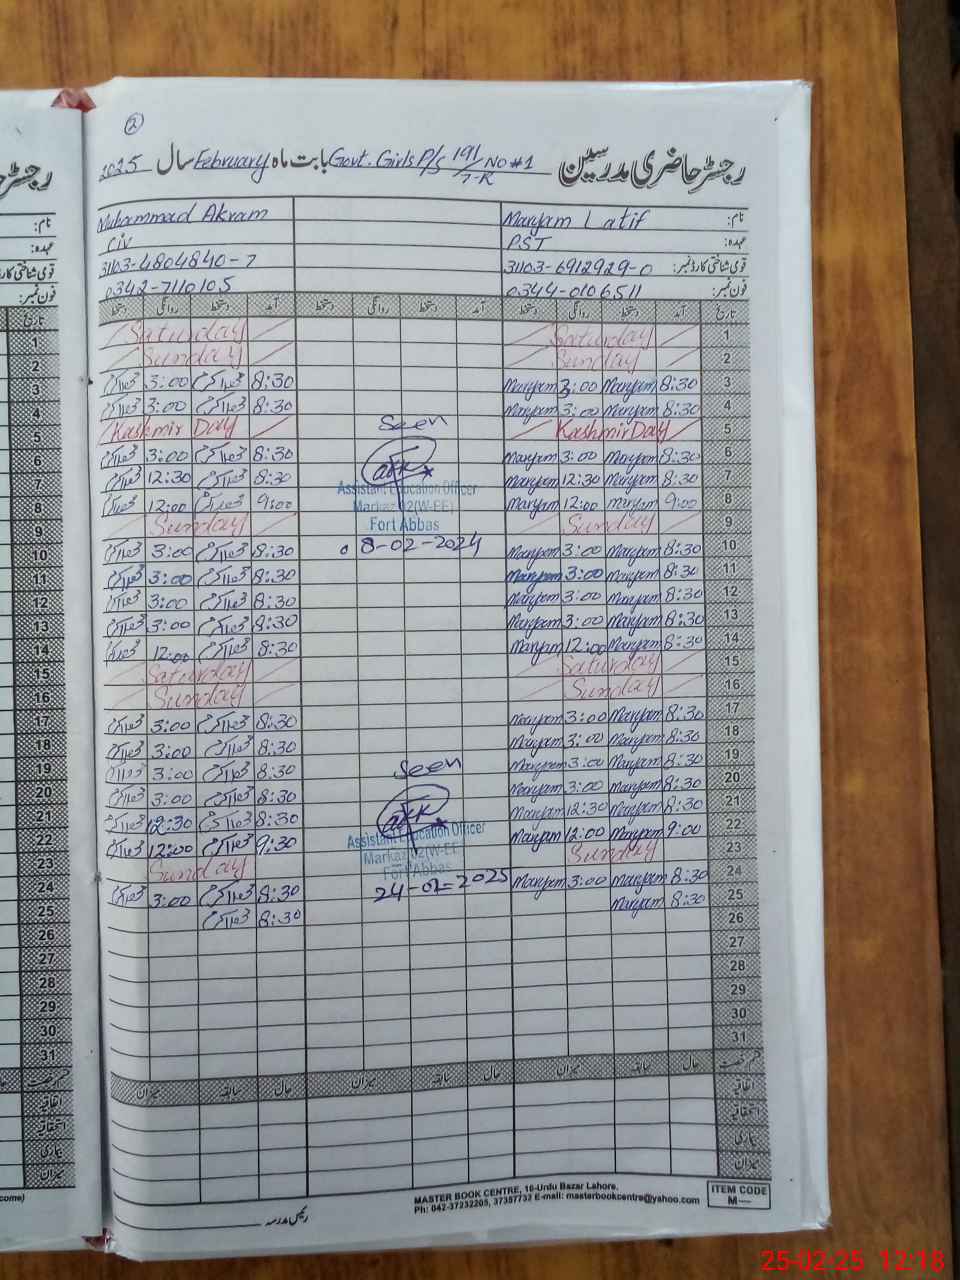 2
رجسٹر حاضری مدرسین Govt. Girls P/S 191/7-R No #1 بابت ماہ February سال 2025
نام: Maryam Latif Muhammad Akram
عہدہ: PST Civ
قومی شناختی کارڈ نمبر: 31103-6912929-0 31103-4804840-7
فون نمبر: 0344-0106511 0342-7110105
تاریخ آمد دستخط روانگی دستخط آمد دستخط روانگی دستخط آمد دستخط روانگی دستخط
1 Saturday Saturday
2 Sunday Sunday
3 8:30 Maryam 3:00 Maryam 8:30 محمد اکرم 3:00 محمد اکرم
4 8:30 Maryam 3:00 Maryam 8:30 محمد اکرم 3:00 محمد اکرم
5 Kashmir Day Seen Kashmir Day
6 8:30 Maryam 3:00 Maryam 8:30 محمد اکرم 3:00 محمد اکرم
7 8:30 Maryam 12:30 Maryam 8:30 محمد اکرم 12:30 محمد اکرم
Assistant Education Officer
8 9:00 Maryam 12:00 Maryam 9:00 محمد اکرم 12:00 محمد اکرم
Markaz 02(W-EE)
9 Sunday Sunday
Fort Abbas
10 8:30 Maryam 3:00 Maryam 08-02-2024 8:30 محمد اکرم 3:00 محمد اکرم
11 8:30 Maryam 3:00 Maryam 8:30 محمد اکرم 3:00 محمد اکرم
12 8:30 Maryam 3:00 Maryam 8:30 محمد اکرم 3:00 محمد اکرم
13 8:30 Maryam 3:00 Maryam 8:30 محمد اکرم 3:00 محمد اکرم
14 8:30 Maryam 12:00 Maryam 8:30 محمد اکرم 12:00 محمد اکرم
15 Saturday Saturday
16 Sunday Sunday
17 8:30 Maryam 3:00 Maryam 8:30 محمد اکرم 3:00 محمد اکرم
18 8:30 Maryam 3:00 Maryam 8:30 محمد اکرم 3:00 محمد اکرم
19 8:30 Maryam 3:00 Maryam Seen 8:30 محمد اکرم 3:00 محمد اکرم
20 8:30 Maryam 3:00 Maryam 8:30 محمد اکرم 3:00 محمد اکرم
21 8:30 Maryam 12:30 Maryam 8:30 محمد اکرم 12:30 محمد اکرم
Assistant Education Officer
22 9:00 Maryam 12:00 Maryam 9:30 محمد اکرم 12:00 محمد اکرم
Markaz 02(W-EE
23 Sunday Sunday
Fort Abbas
24 8:30 Maryam 3:00 Maryam 24-02-2025 8:30 محمد اکرم 3:00 محمد اکرم
25 8:30 Maryam 8:30 محمد اکرم
26
27
28
29
30
31
قسم رخصت حال سابقہ میزان حال سابقہ میزان حال سابقہ میزان
اتفاقیہ
استحقاقیہ
بیماری
میزان
MASTER BOOK CENTRE, 16-Urdu Bazar Lahore.
Ph: 042-37232205, 37357732 E-mail: masterbookcentre@yahoo.com
ITEM CODE
M—
رئیس مدرسہ
25-02-25 12:18